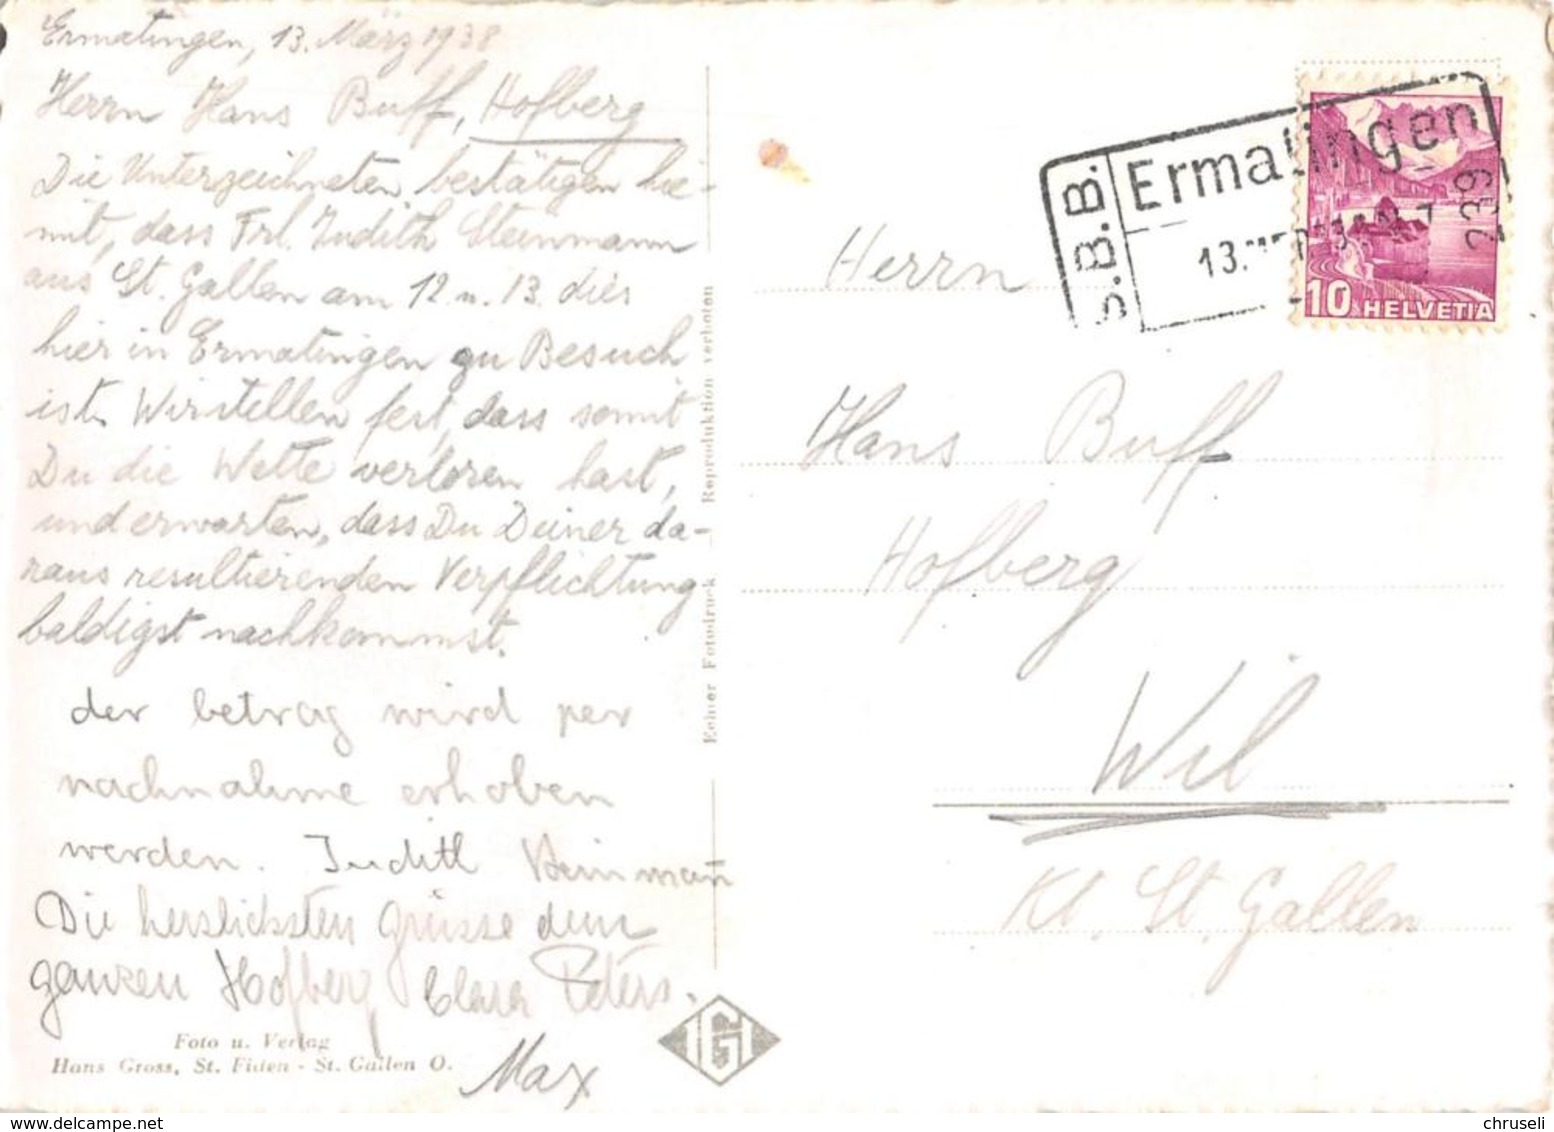 Ermatingen, 13. März 1938
Herrn Hans Buff, Hofberg
Die Unterzeichneten bestätigen hie-
mit, dass Frl. Judith Steinmann
aus St. Gallen am 12 u. 13. dies
hier in Ermatingen zu Besuch
ist. Wir stellen fest, dass somit
Du die Wette verloren hast,
und erwarten, dass Du Deiner da-
raus resultierenden Verpflichtung
baldigst nachkommst.
der betrag wird per
nachnahme erhoben
werden. Judith Steinmann
Die herzlichsten grüsse dem
ganzen Hofberg Clara Peters.
Max
Foto u. Verlag
Hans Gross, St. Fiden - St. Gallen O.
Echter Fotodruck Reproduktion verboten
IGI
S.B.B. Ermatingen
13. 239
10 HELVETIA
Herrn
Hans Buff
Hofberg
Wil
Kt. St. Gallen
chruseli